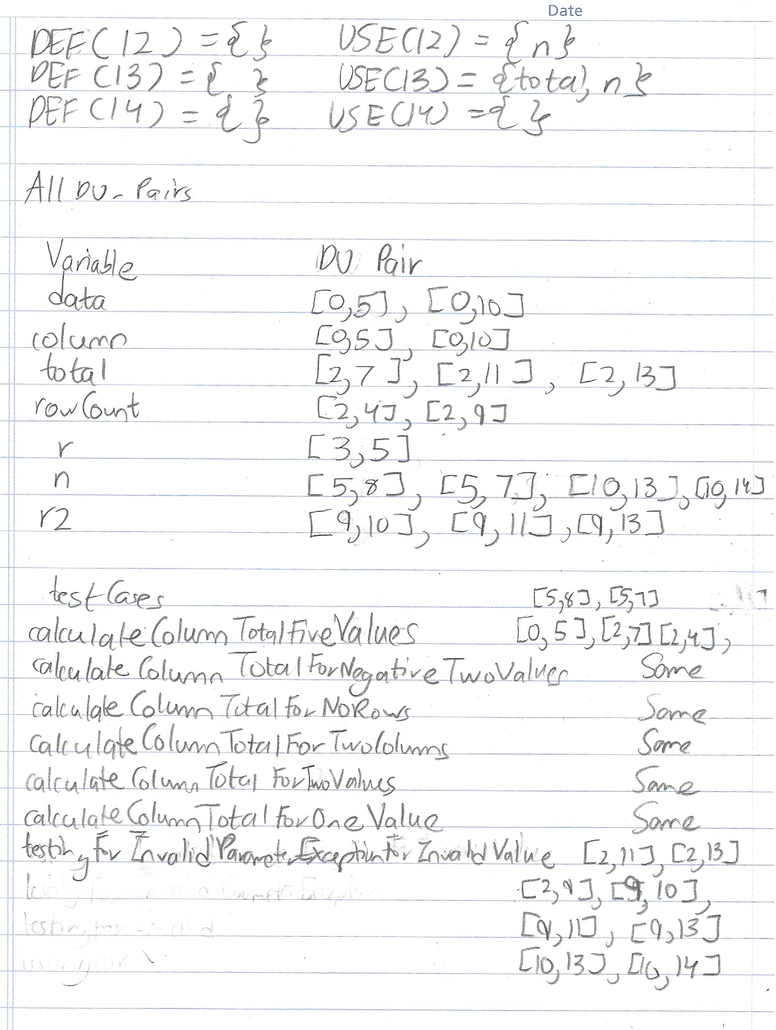 Date
DEF(12) = { } USE(12) = {n}
DEF(13) = { } USE(13) = {total, n}
DEF(14) = { } USE(14) = { }
All DU-Pairs
Variable DU Pair
data [0,5], [0,10]
column [0,5], [0,10]
total [2,7], [2,11], [2,13]
rowCount [2,4], [2,9]
r [3,5]
n [5,8], [5,7], [10,13], [10,14]
r2 [9,10], [9,11], [9,13]
testCases [5,8], [5,7]
calculateColumnTotalFiveValues [0,5], [2,7] [2,4],
calculate Column TotalForNegativeTwoValues Same
calculate Column Total For NoRows Same
calculate Column Total For TwoColums Same
calculate Column Total ForTwoValues Same
calculate Column Total For One Value Same
testing For Invalid Parameter Exception For Invalid Value [2,11], [2,13]
[2,9], [9,10],
[9,11], [9,13]
[10,13], [10,14]